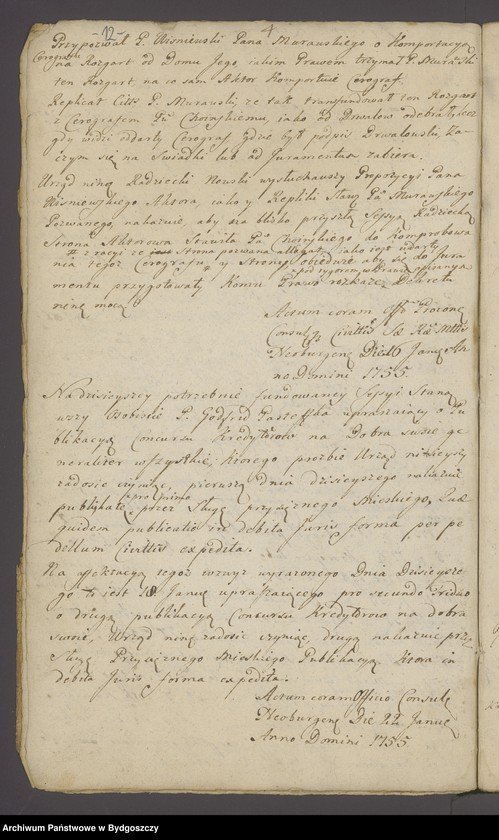 -12-
4
Przypozwał P. Wisniewski Pana Murawskiego o Komportacyą
Cerografu
na Rozgart od Domu Jego, jakim Prawem trzymał P. Murawski
ten Rozgart, na co sam Aktor Komportuie Cerograf.
Replicat Citt. P. Murawski, ze tak transfundował ten Rozgart
z Cerografem Pu Choinskiemu, iako od Drwalow odebrał, iesz
gdy widzi odarty Cerograf gdzie był podpis Drwalowski, ka
czym się na Swiadki lub ad Juramentum zabiera.
Urząd ninę Radziecki Nowski wysłuchawszy Propozycyi Pana
Wisniewskiego Aktora, iako y Repliki Sławę Pa Murawskiego
Pozwanego, nakazuie, aby na blisko przyszłą Sessyą Radziecką
Strona Aktorowa Stawiła Pa Choinskiego do Komprobowa
# z racyi ze Strona pozwana allegat, iako iest udarty
nia tegoz Cerografu # y Strony obieduie aby się do Jura
pod rygorem utracenia
mentu przygotowały Komu Prawo rozkaże Dekretu
ninę mocą
Actum coram Offo Procons
Consulęs Civittis Sæ Ræ Mttis
Neoburgenę Die 16 Janę An
no Domini 1755.
Na dzisieyszey potrzebnie fundowaney Sessyi Staną
wszy Osobiscie P. Godfrid upraszaiący o Pu
blikacyą Concursu Kredytorow na Dobra swoie ge
neraliter wszystkie, ktorego prozbie Urząd ninieyszy
zadosic czyniąc, pierwszą dnia dzisieyszego nakazuie
pro primo
publikatę przez Sługę przysięznego Mieskiego, Quæ
quidem publicatio in debita Juris forma per pe
dellum Civittis expedita.
Na affektacyą tegoz wzwyz wyrazonego Dnia Dzisieysze
go to iest 18 Janę upraszaiącego pro secundo triduo
o drugą publikacyą Concursu Kredytorow na dobra
swoie, Urząd ninę zadosic czyniąc, drugą nakazuie przez
Sługę Przysięznego Mieskiego Publikacyą Ktora in
debita Juris forma expedita.
Actum coram Officio Consulę
Neoburgenę Die 22 Janue
Anno Domini 1755
Archiwum Państwowe w Bydgoszczy